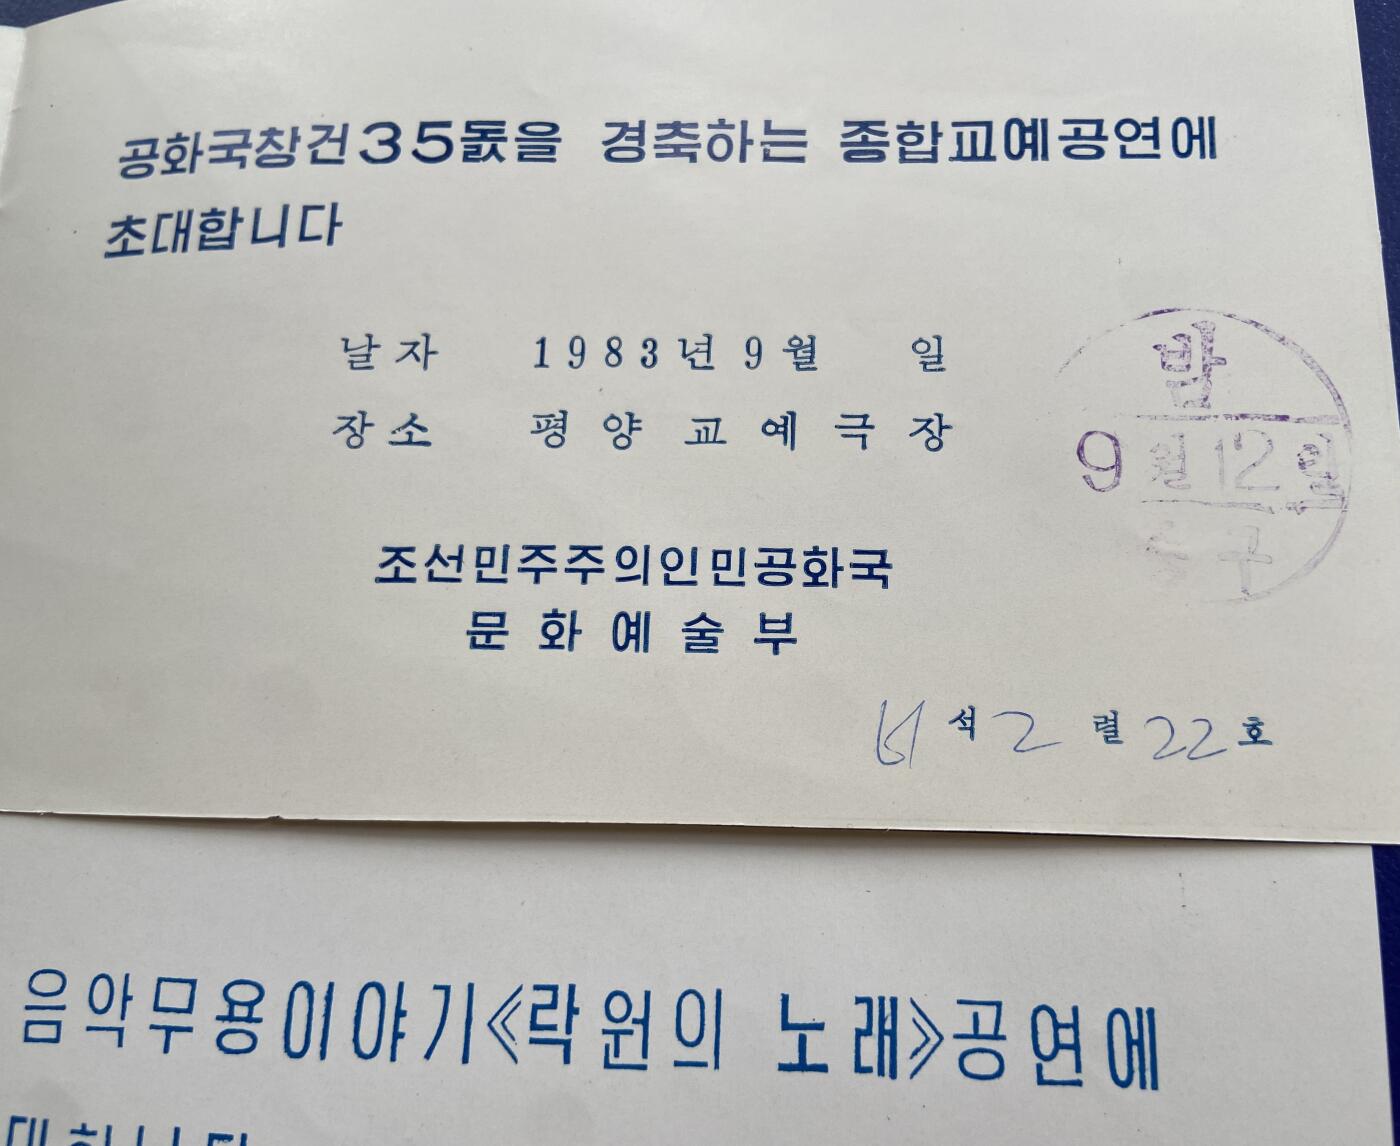 공화국창건35돐을 경축하는 종합교예공연에
초대합니다
날자 1983년 9월 일
장소 평양교예극장
밤
9월 12일
구
조선민주주의인민공화국
문화예술부
석 2 렬 22 호
음악무용이야기《락원의 노래》공연에
대합니다